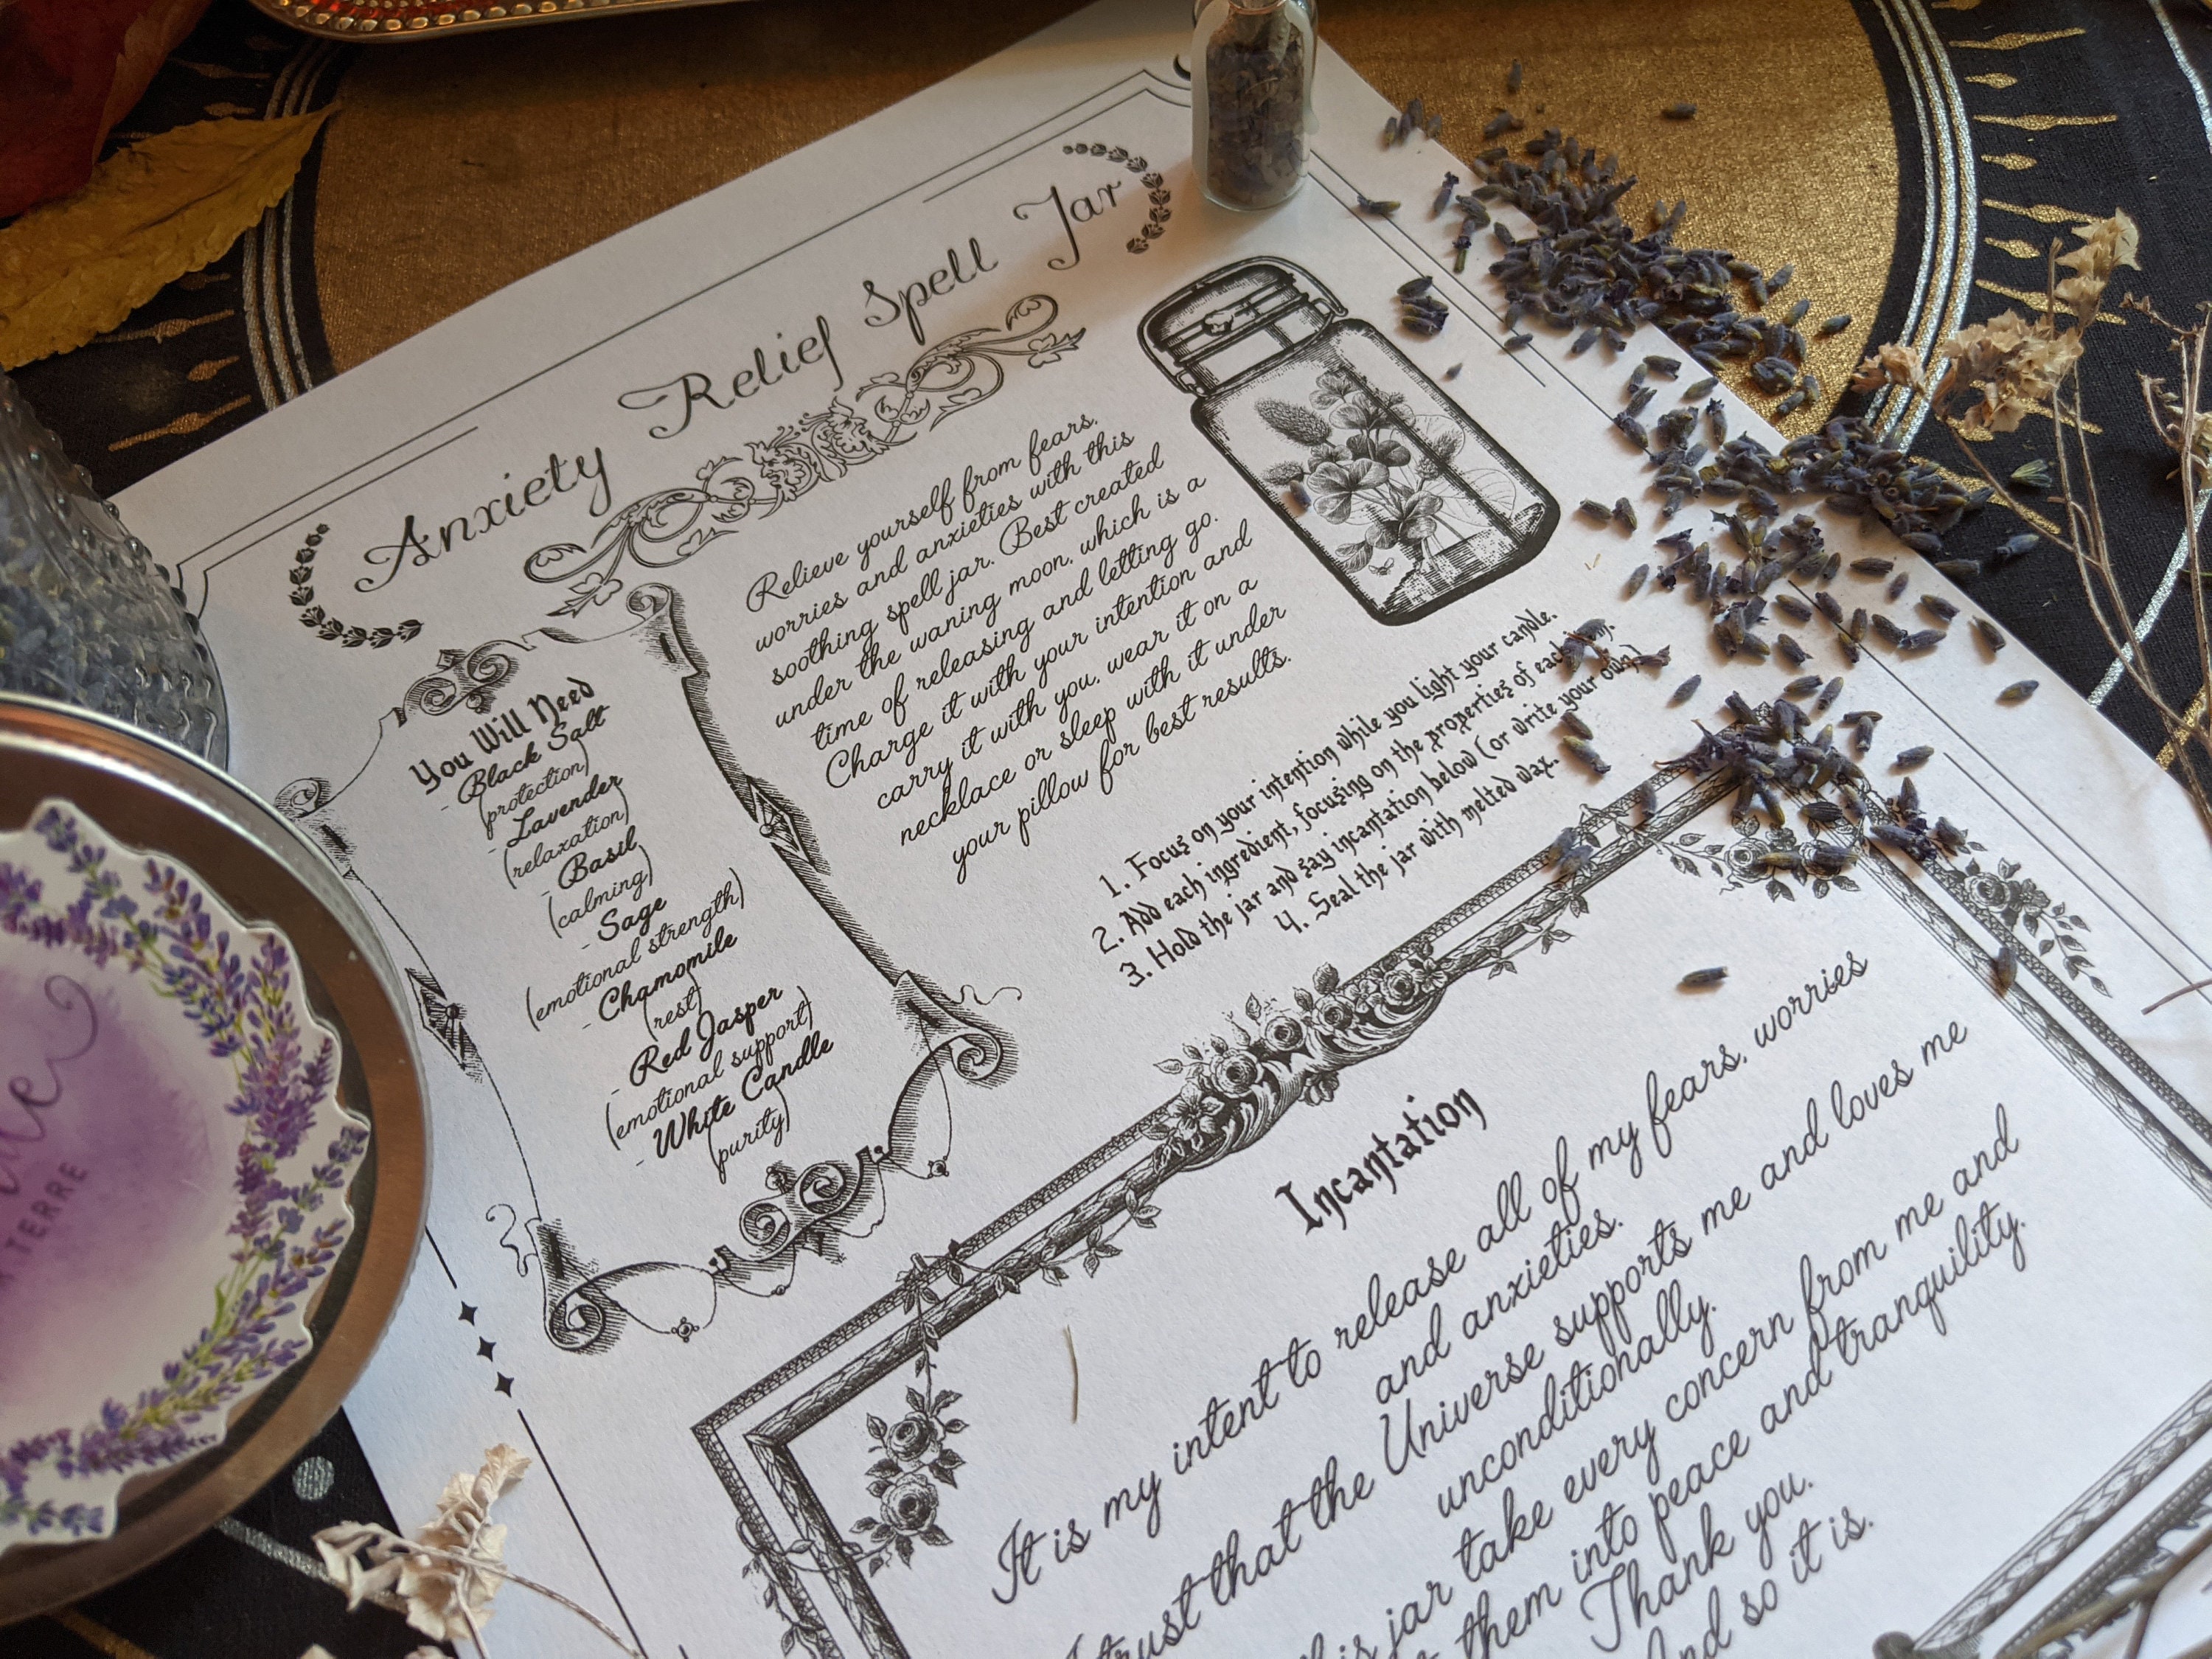 Anxiety Relief Spell Jar
Relieve yourself from fears,
worries and anxieties with this
soothing spell jar. Best created
under the waning moon, which is a
time of releasing and letting go.
Charge it with your intention and
carry it with you, wear it on a
necklace or sleep with it under
your pillow for best results.
You Will Need
- Black Salt
(protection)
- Lavender
(relaxation)
- Basil
(calming)
- Sage
(emotional strength)
- Chamomile
(rest)
- Red Jasper
(emotional support)
- White Candle
(purity)
1. Focus on your intention while you light your candle.
2. Add each ingredient, focusing on the properties of each item.
3. Hold the jar and say incantation below (or write your own)
4. Seal the jar with melted wax.
Incantation
It is my intent to release all of my fears, worries
and anxieties.
trust that the Universe supports me and loves me
unconditionally.
jar take every concern from me and
them into peace and tranquility.
Thank you.
And so it is.
TERRE